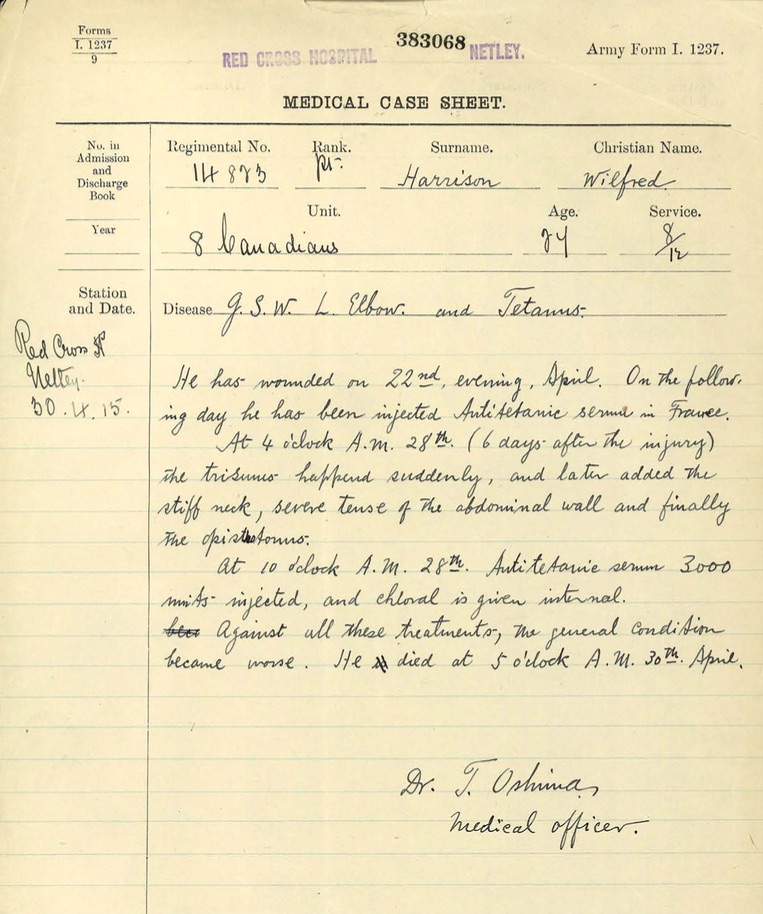 Forms
I. 1237
9
RED CROSS HOSPITAL 383068 NETLEY.
Army Form I. 1237.
MEDICAL CASE SHEET.
No. in
Admission
and
Discharge
Book
Year
Regimental No. Rank. Surname. Christian Name.
14873 Pt. Harrison Wilfred
Unit. Age. Service.
8 Canadians 24 8/12
Station
and Date.
Disease G. S. W. L. Elbow. and Tetanus.
Red Cross H
Netley.
30. 4. 15.
He has wounded on 22nd, evening, April. On the follow-
ing day he has been injected Antitetanic serum in France.
At 4 o'clock A.M. 28th. (6 days after the injury)
the trismus happend suddenly, and later added the
stiff neck, severe tense of the abdominal wall and finally
the opisthotonus.
At 10 o'clock A.M. 28th. Antitetanic serum 3000
units injected, and chloral is given internal.
Against all these treatments, the general condition
became worse. He died at 5 o'clock A.M. 30th. April.
Dr. T. Oshima,
Medical officer.